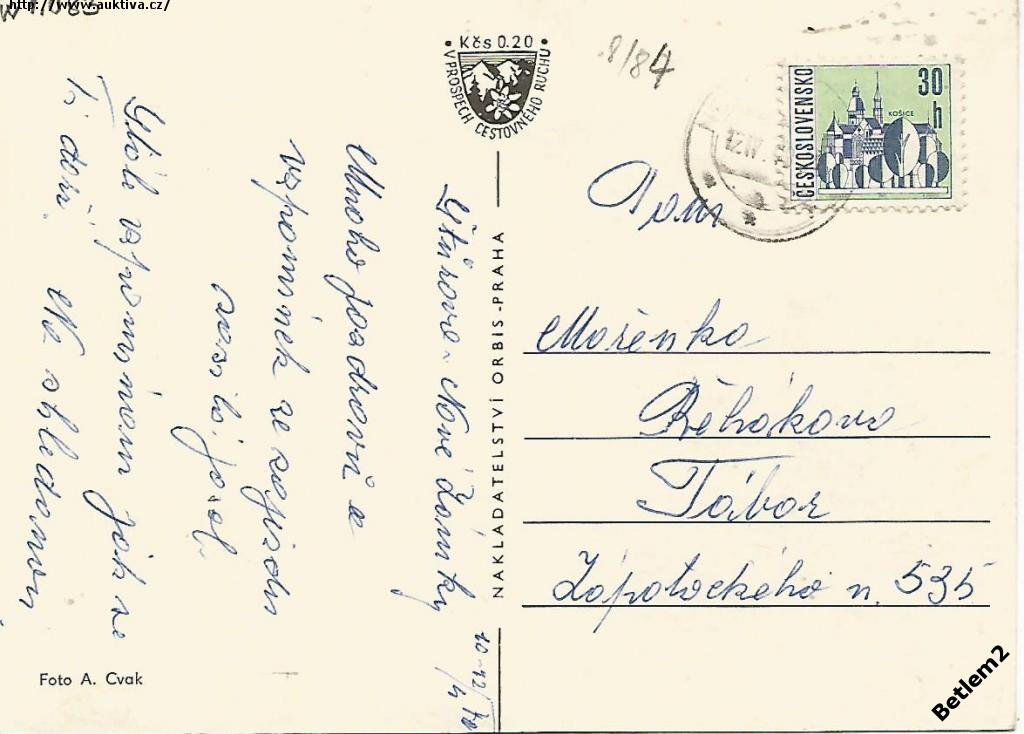 http://www.auktiva.cz/
• Kčs 0.20 •
V PROSPĚCH CESTOVNÉHO RUCHU
8/84
ČESKOSLOVENSKO
30
h
KOŠICE
12.IV.
Štúrovo - Nové Zámky
10-12/4
Mnoho pozdravů a
vzpomínek ze zájezdu
posílá
Stále vzpomínám jak se
ti daří. Na shledanou
NAKLADATELSTVÍ ORBIS-PRAHA
Mařenka
Řehákova
Tábor
Zápotockého n. 535
Foto A. Cvak
Betlem2